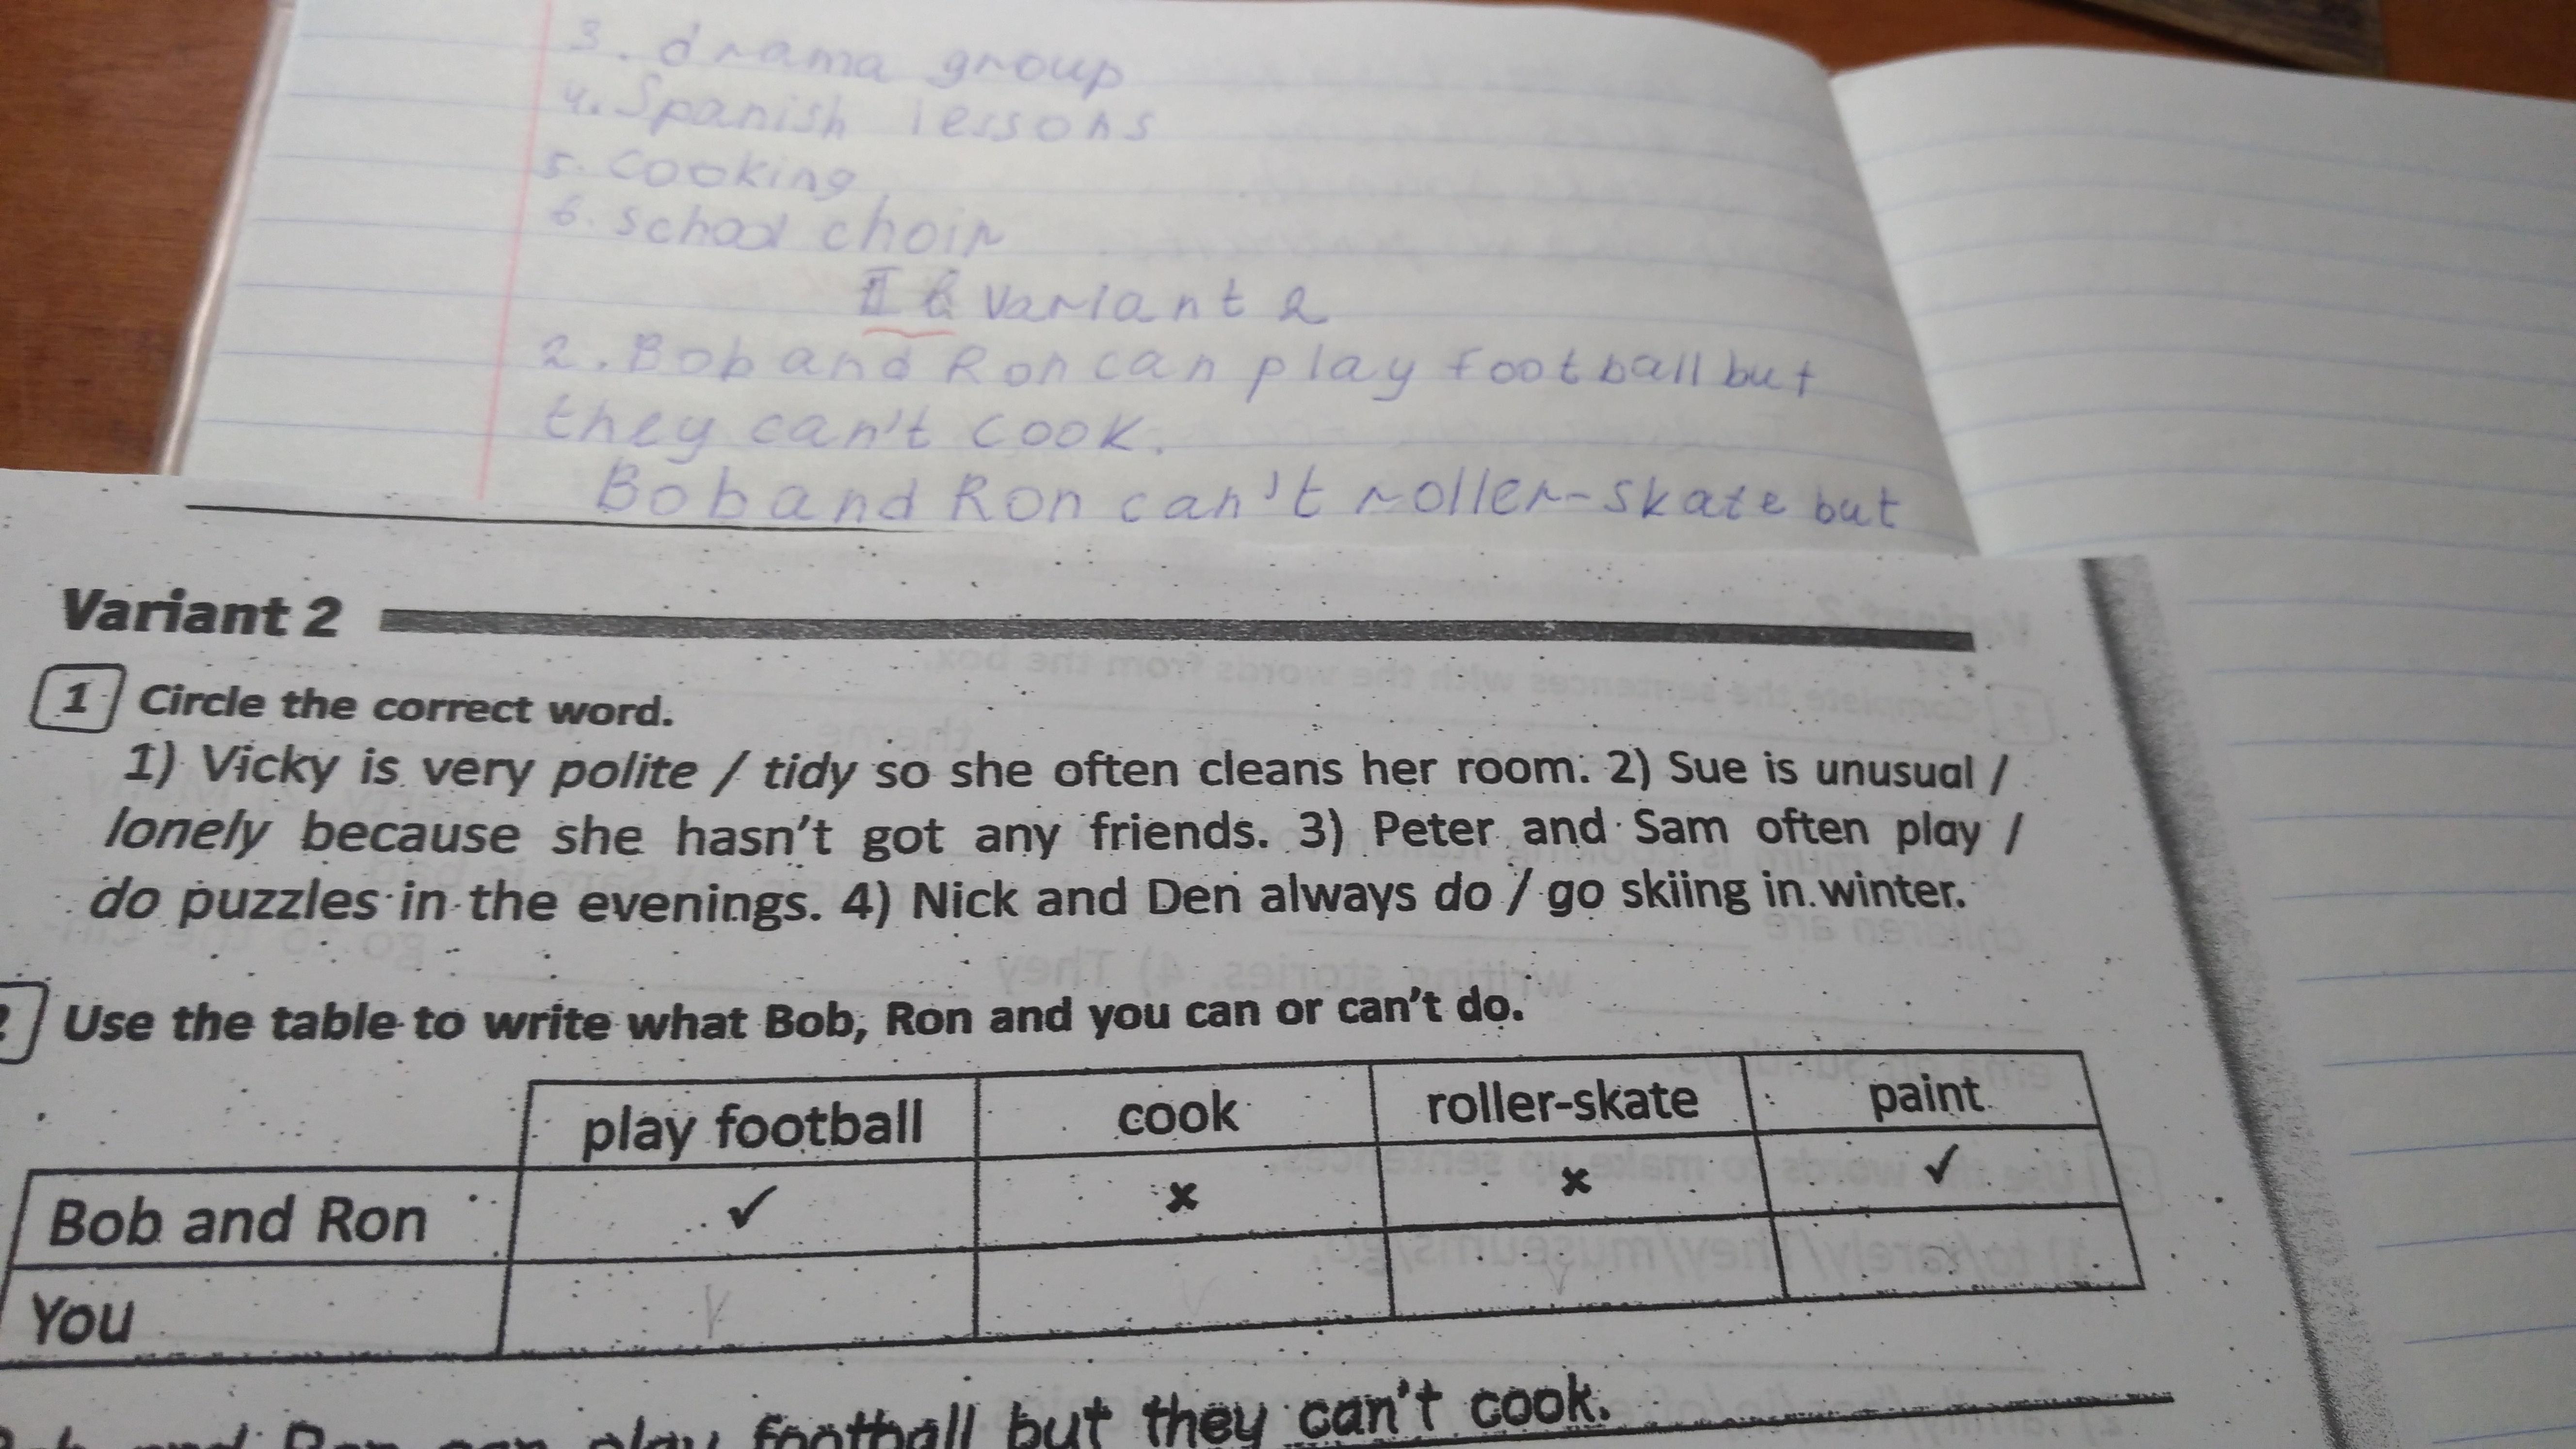 3. drama group
4. Spanish lessons
5. cooking
6. school choir
II б Variant 2
2. Bob and Ron can play football but
they can't cook.
Bob and Ron can't roller-skate but
Variant 2
1 Circle the correct word.
1) Vicky is very polite / tidy so she often cleans her room. 2) Sue is unusual /
lonely because she hasn't got any friends. 3) Peter and Sam often play /
do puzzles in the evenings. 4) Nick and Den always do / go skiing in winter.
2 Use the table to write what Bob, Ron and you can or can't do.
play football cook roller-skate paint
Bob and Ron ✓ x x ✓
You V V V
and Ron can play football but they can't cook.